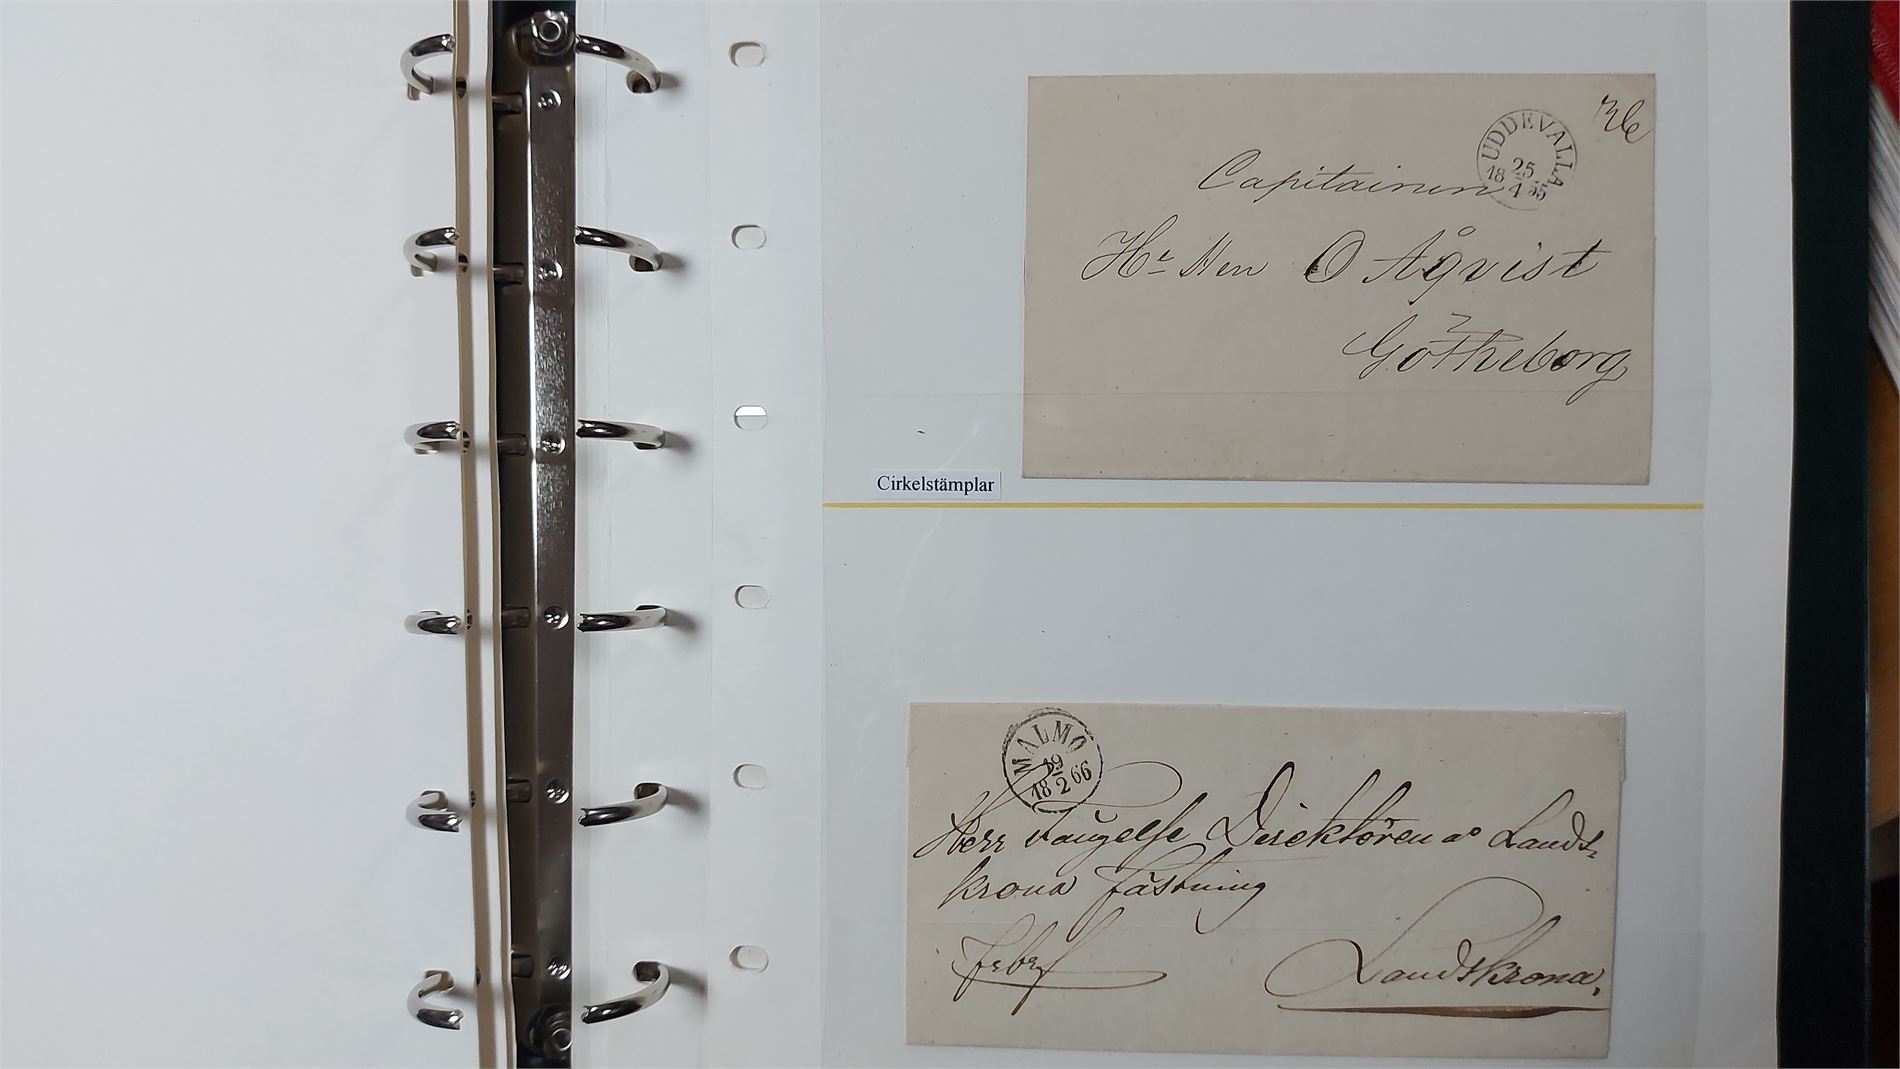 UDDEVALLA
25
18 4 55
Capitainen
Hr
O Åqvist
Götheborg
Cirkelstämplar
MALMÖ
19
18 2 66
Herr Fångelse Direktören Lands-
krona Fästning
Landskrona.